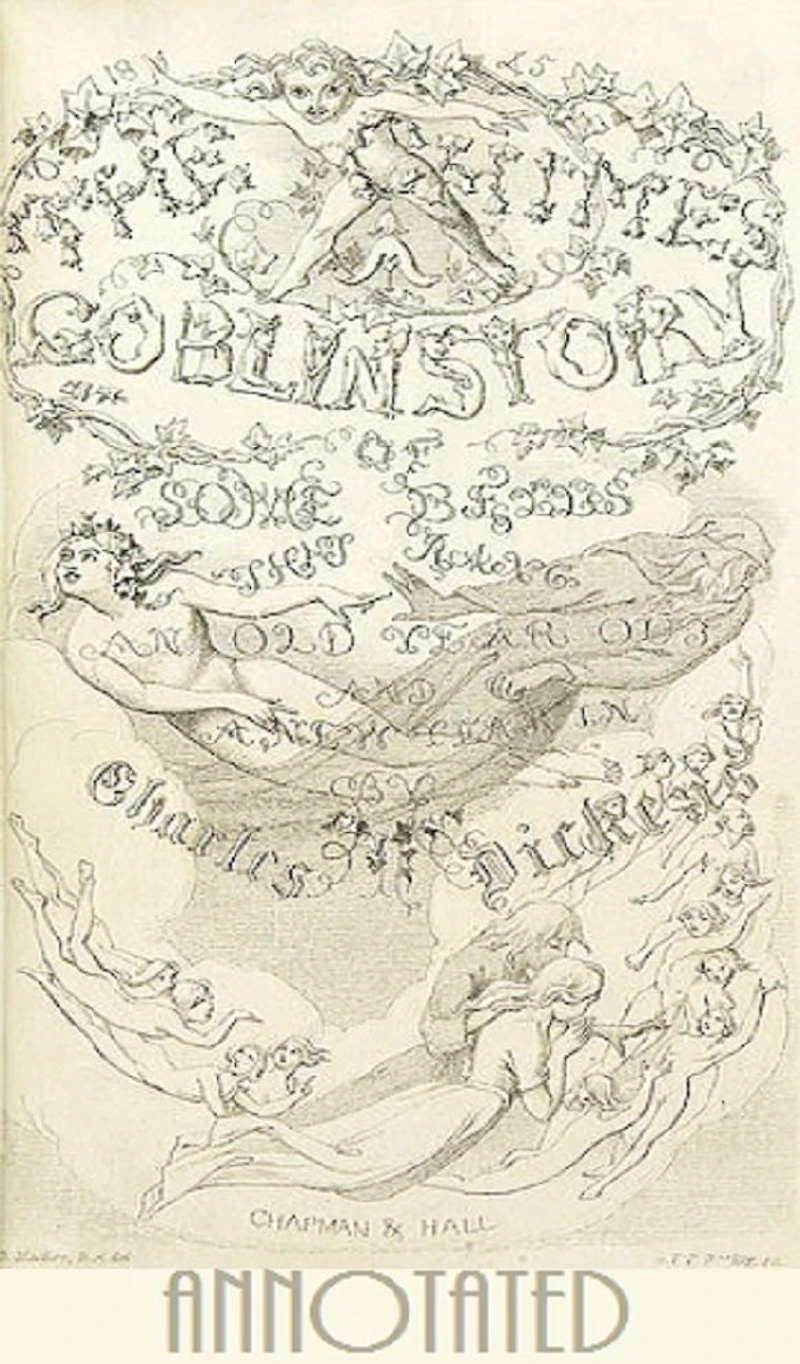 18
THE
A
GOBLIN STORY
OF
SOME BELLS
THAT RANG
AN OLD YEAR OUT
AND
A NEW YEAR IN
BY
Charles Dickens
CHAPMAN & HALL
ANNOTATED